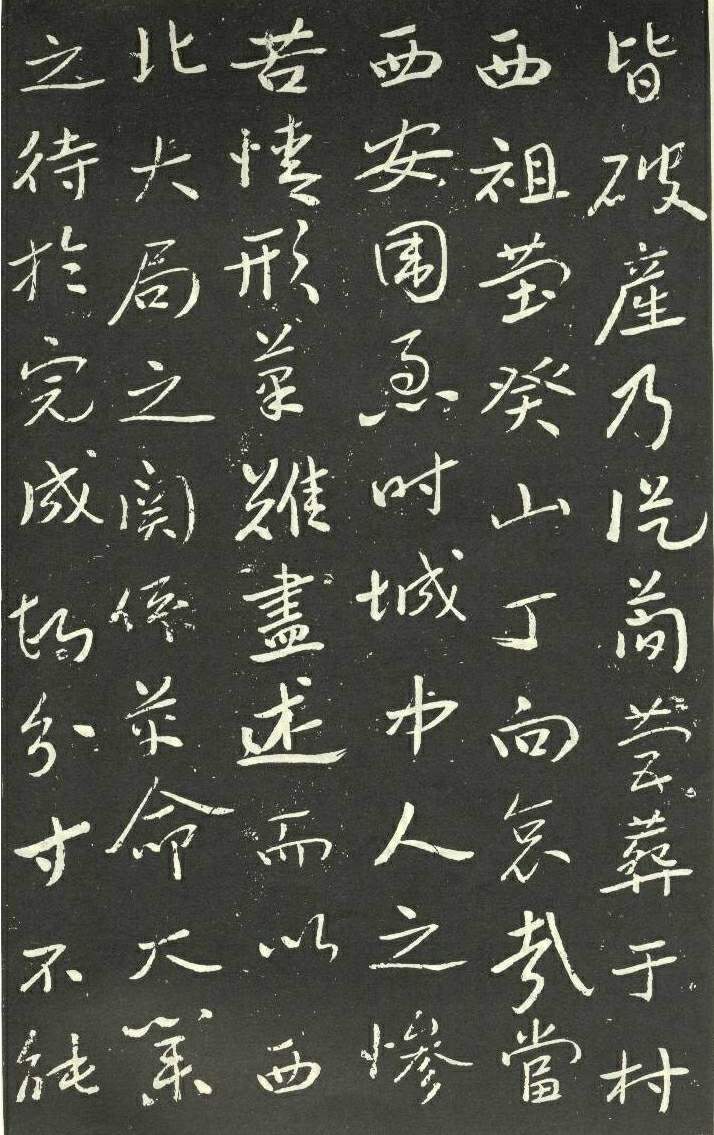 皆破產乃從簡營葬于村
西祖塋癸山丁向哀哉當
西安围急时城中人之慘
苦情形筆難盡述而以西
北大局之関係革命大業
之待於完成均分寸不能